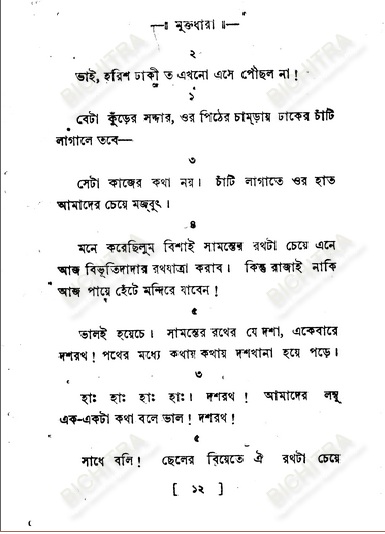 —॥ মুক্তধারা ॥—
২
ভাই, হরিশ ঢাকী ত এখনো এসে পৌঁছল না !
১
বেটা কুঁড়ের সর্দ্দার, ওর পিঠের চামড়ায় ঢাকের চাঁটি
লাগালে তবে—
৩
সেটা কাজের কথা নয়। চাঁটি লাগাতে ওর হাত
আমাদের চেয়ে মজবুৎ।
৪
মনে করেছিলুম বিশাই সামন্তের রথটা চেয়ে এনে
আজ বিভূতিদাদার রথযাত্রা করাব। কিন্তু রাজাই নাকি
আজ পায়ে হেঁটে মন্দিরে যাবেন !
৫
ভালই হয়েচে। সামন্তের রথের যে দশা, একেবারে
দশরথ ! পথের মধ্যে কথায় কথায় দশখানা হয়ে পড়ে।
৩
হাঃ হাঃ হাঃ হাঃ। দশরথ ! আমাদের লম্বু
এক-একটা কথা বলে ভাল ! দশরথ !
৫
সাধে বলি ! ছেলের বিয়েতে ঐ রথটা চেয়ে
[ ১২ ]
BICHITRA